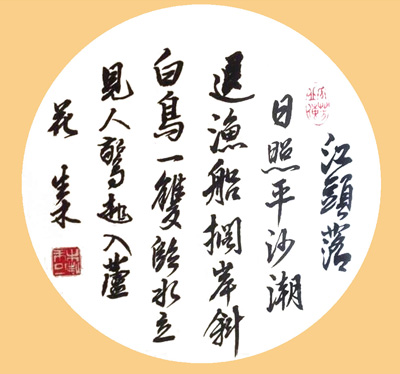 江頭落
日照平沙潮
退漁船擱岸斜
白鳥一雙臨水立
見人驚起入蘆
花